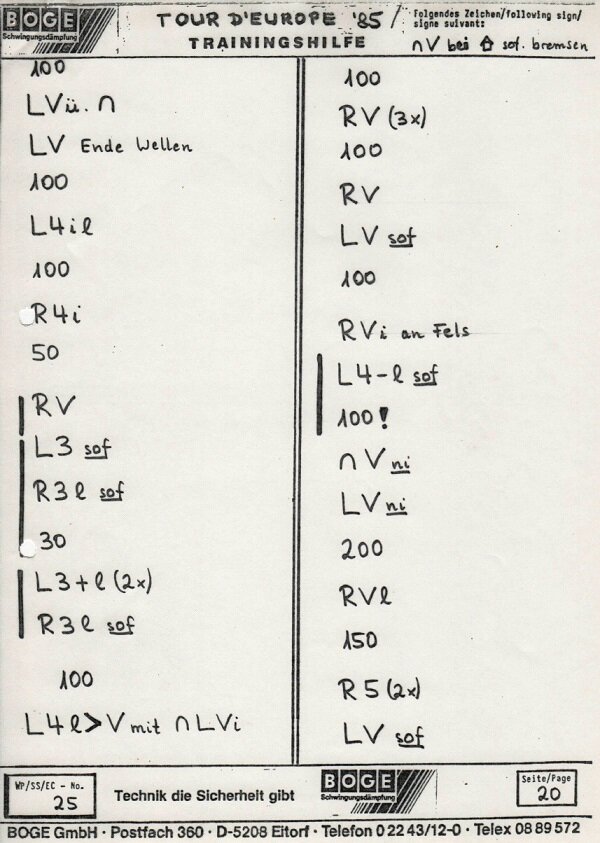 BOGE
Schwingungsdämpfung
TOUR D'EUROPE '85
TRAININGSHILFE
Folgendes Zeichen/following sign/
signe suivant:
∩V bei ⇧ sof. bremsen
100
LVü. ∩
LV Ende Wellen
100
L4il
100
R4i
50
RV
L3 sof
R3l sof
30
L3+l (2x)
R3l sof
100
L4l>V mit ∩ LVi
100
RV (3x)
100
RV
LV sof
100
RVi an Fels
L4-l sof
100!
∩ V ni
LV ni
200
RVl
150
R5 (2x)
LV sof
WP/SS/EC - No.
25
Technik die Sicherheit gibt
BOGE
Schwingungsdämpfung
Seite/Page
20
BOGE GmbH · Postfach 360 · D-5208 Eitorf · Telefon 0 22 43/12-0 · Telex 08 89 572